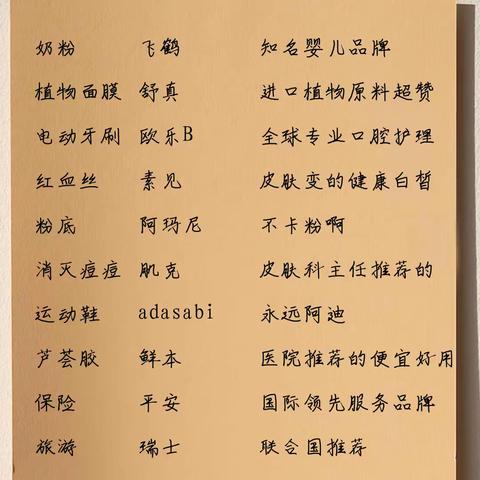 奶粉 飞鹤 知名婴儿品牌
植物面膜 舒真 进口植物原料超赞
电动牙刷 欧乐B 全球专业口腔护理
红血丝 素见 皮肤变的健康白皙
粉底 阿玛尼 不卡粉啊
消灭痘痘 肌克 皮肤科主任推荐的
运动鞋 adasabi 永远阿迪
芦荟胶 鲜本 医院推荐的便宜好用
保险 平安 国际领先服务品牌
旅游 瑞士 联合国推荐